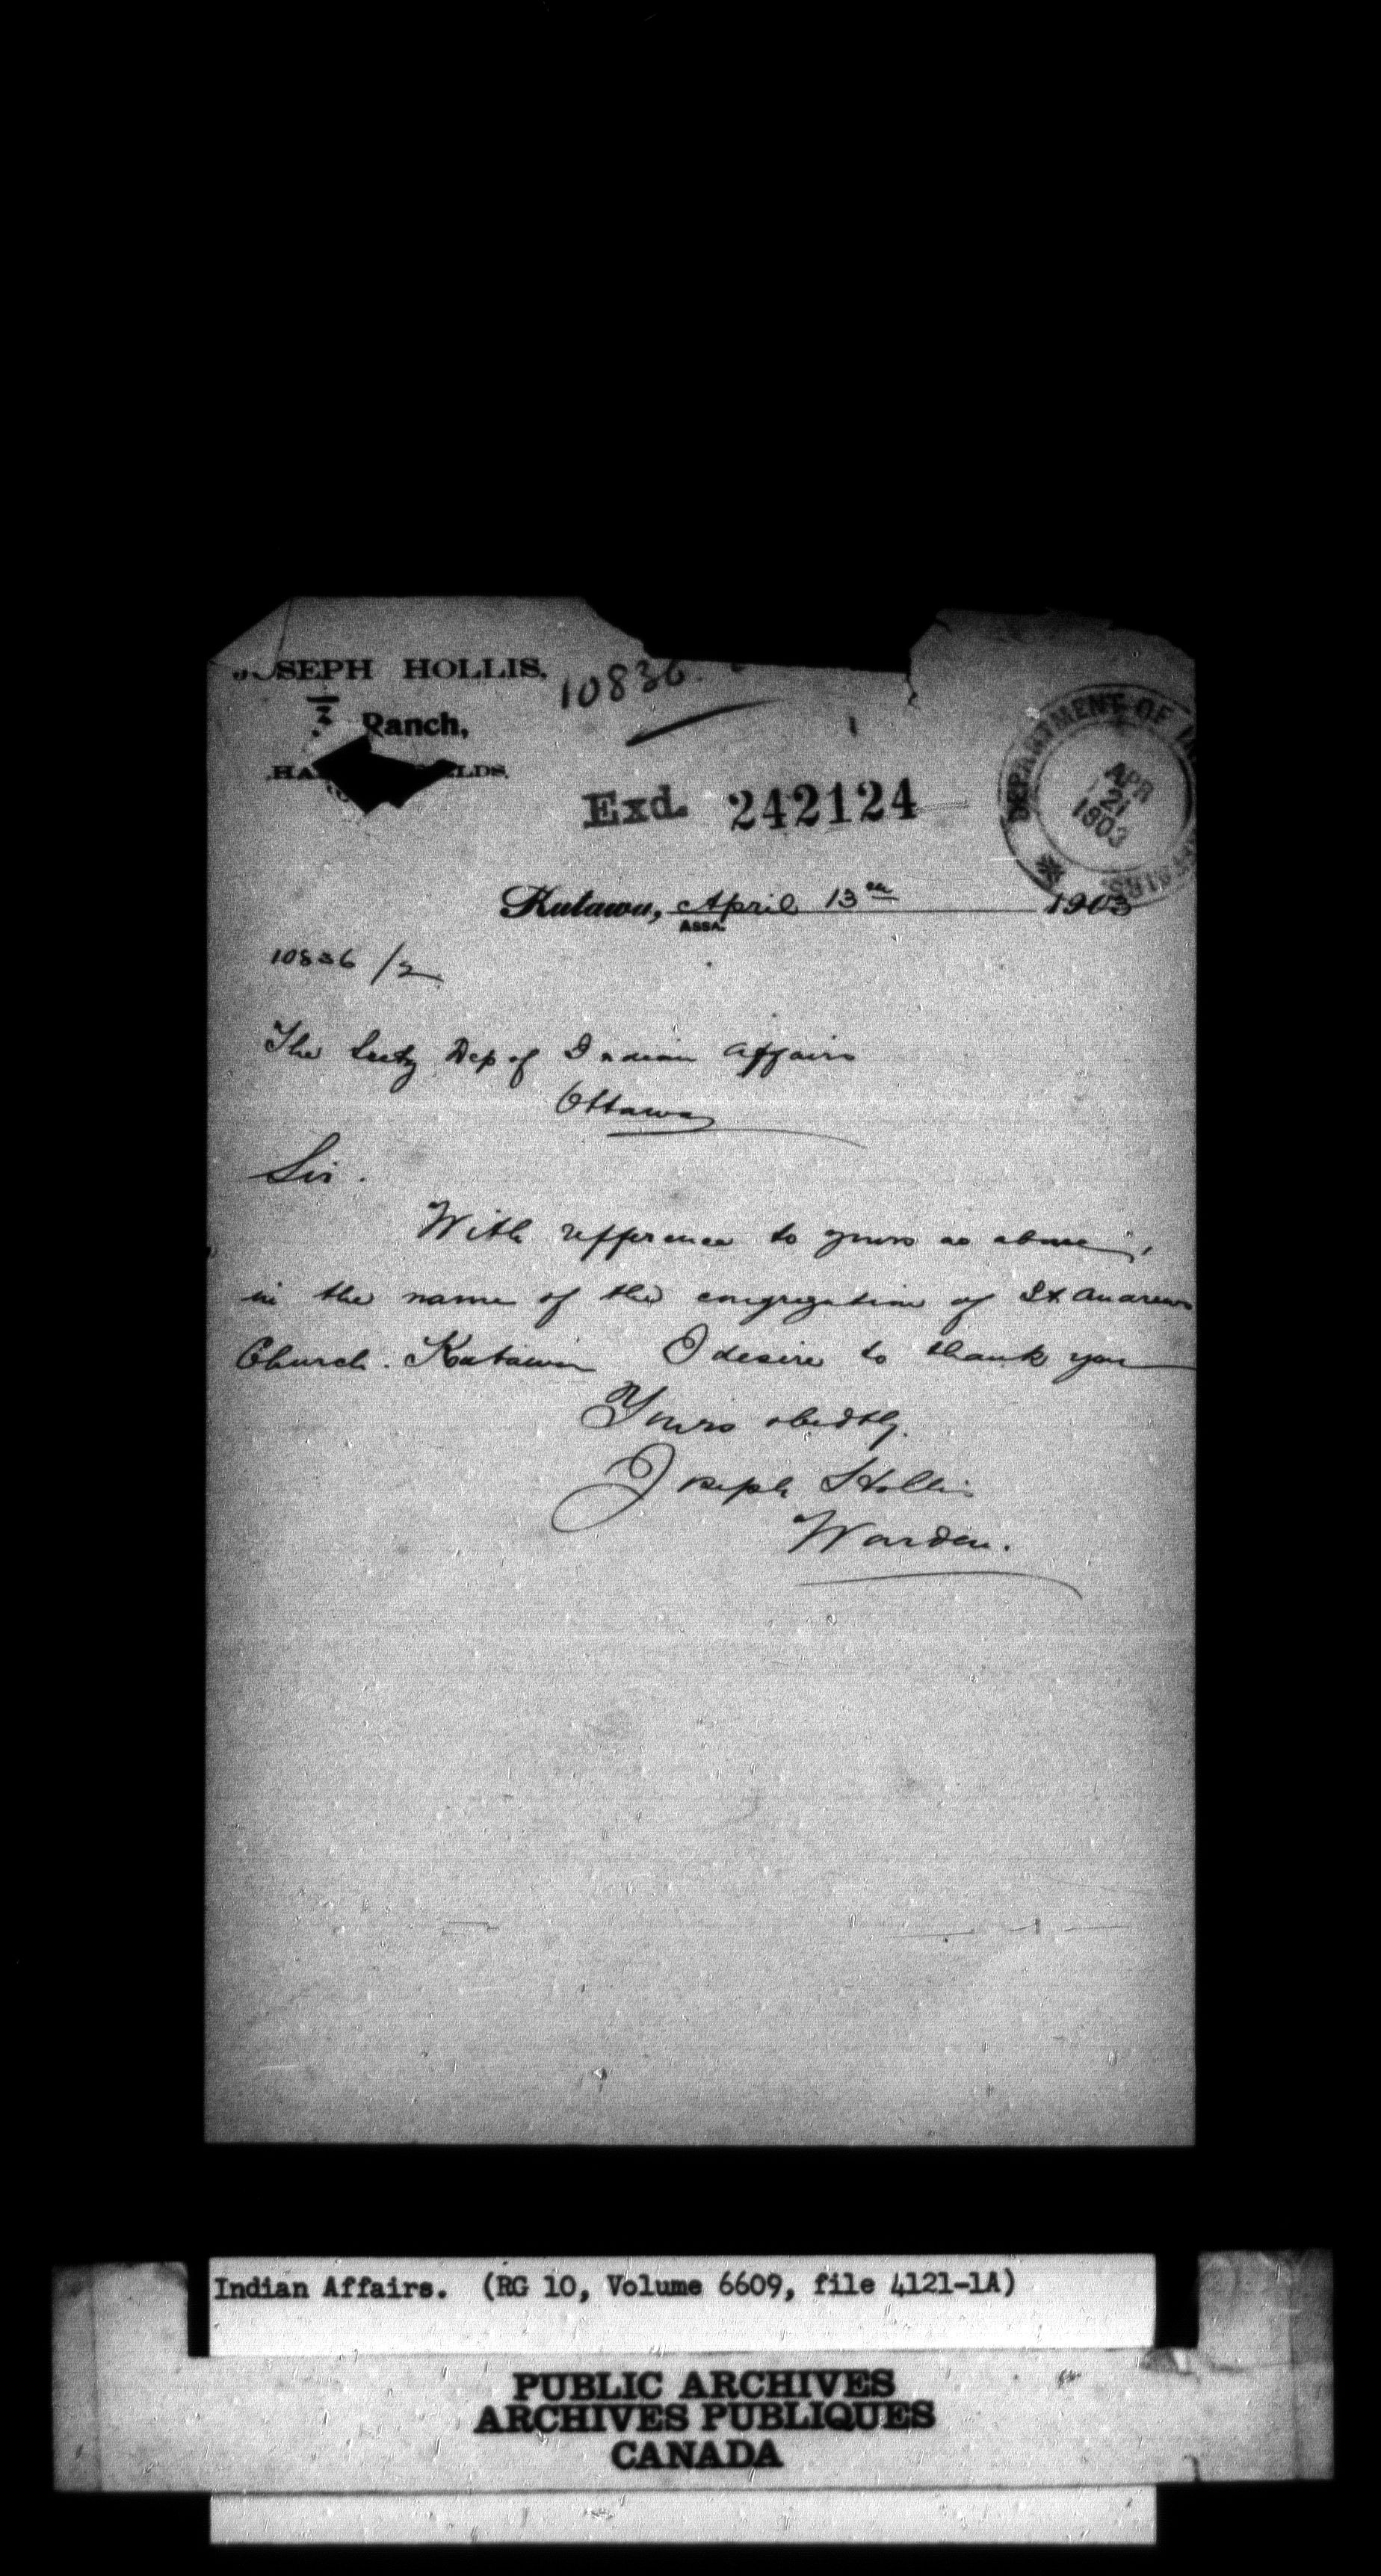 JOSEPH HOLLIS,
10836.
Ranch,
Exd. 242124
DEPARTMENT OF
APR
21
1903
AFFAIRS
Kutawa, April 13th 1903
ASSA.
10836/2
The Secty Dep of Indian Affairs
Ottawa
Sir.
With refference to yours as above,
in the name of the congregation of St Andrews
Church. Kutawa I desire to thank you
Yours obedtly.
Joseph Hollis
Warden.
Indian Affairs. (RG 10, Volume 6609, file 4121-1A)
PUBLIC ARCHIVES
ARCHIVES PUBLIQUES
CANADA